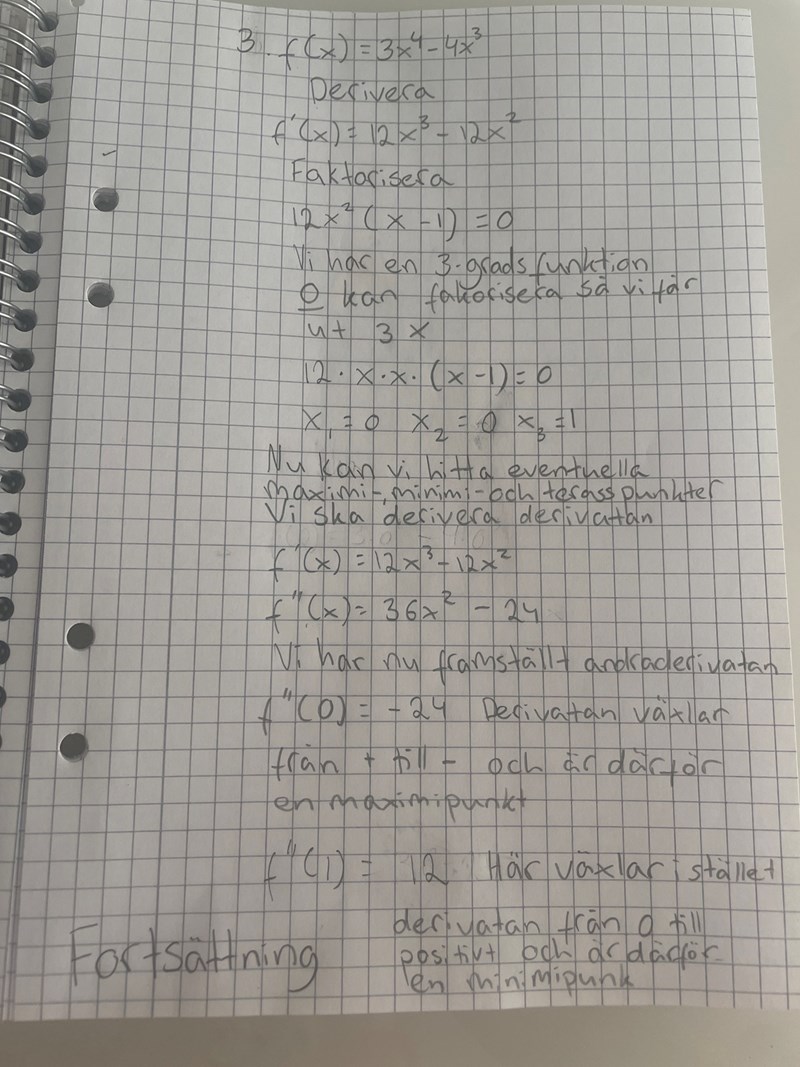 3. f(x) = 3x⁴ - 4x³
Derivera
f'(x) = 12x³ - 12x²
Faktorisera
12x² (x - 1) = 0
Vi har en 3-grads funktion
O kan faktorisera så vi får
ut 3 x
12 · x · x · (x - 1) = 0
x₁ = 0 x₂ = 0 x₃ = 1
Nu kan vi hitta eventuella
maximi-, minimi- och terass punkter
Vi ska derivera derivatan
f'(x) = 12x³ - 12x²
f''(x) = 36x² - 24
Vi har nu framställt andraderivatan
f''(0) = -24 Derivatan växlar
från + till - och är därför
en maximipunkt
f''(1) = 12 Här växlar istället
derivatan från 0 till
positivt och är därför
en minimipunk
Fortsättning